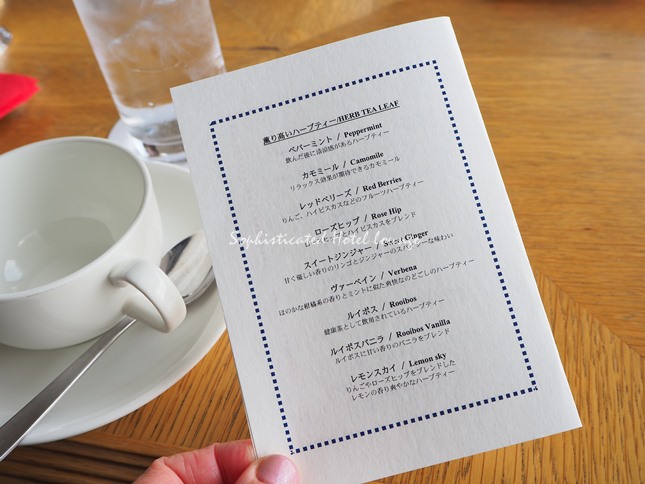 薫り高いハーブティー/HERB TEA LEAF
ペパーミント / Peppermint
飲んだ後に清涼感があるハーブティー
カモミール / Camomile
リラックス効果が期待できるカモミール
レッドベリーズ / Red Berries
りんご、ハイビスカスなどのフルーツハーブティー
ローズヒップ / Rose Hip
とハイビスカスをブレンド
Sophisticated Hotel lounge
スイートジンジャー / Sweet Ginger
甘く優しい香りのリンゴとジンジャーのスパイシーな味わい
ヴァーベイン / Verbena
ほのかな柑橘系の香りとミントに似た爽快なのどごしのハーブティー
ルイボス / Rooibos
健康茶として飲用されているハーブティー
ルイボスバニラ / Rooibos Vanilla
ルイボスに甘い香りのバニラをブレンド
レモンスカイ / Lemon sky
りんごやローズヒップをブレンドした
レモンの香り爽やかなハーブティー